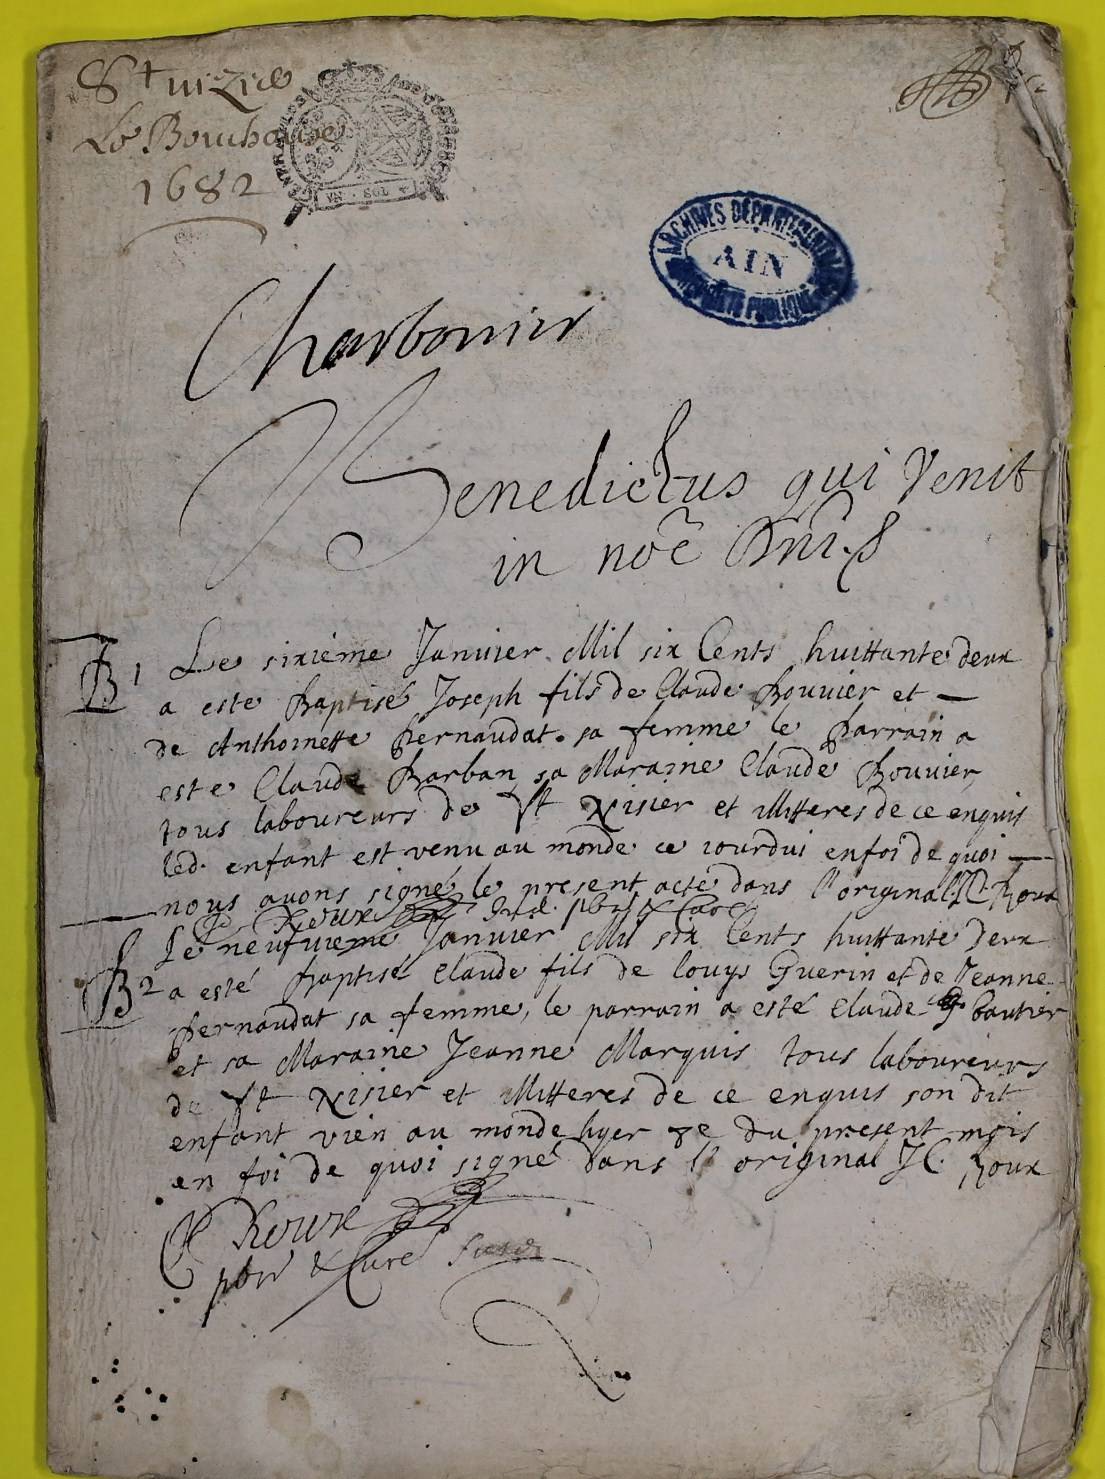 St nizier
Le Bouchoux
1682
VN · SOL
ARCHIVES DÉPARTEMENTALES
AIN
PROPRIÉTÉ PUBLIQUE
Charbonnier
Benedictus qui venit
in noē Dni.
B 1 Le sixieme Janvier Mil six Cents huittante deux
a este Baptisé Joseph fils de Claude Bouvier et —
de Anthoinette Pernaudat sa femme le parrain a
este Claude Barban sa Maraine Claude Bouvier,
tous laboureurs de St Nisier et illitteres de ce enquis
led. enfant est venu au monde ce iourdui en foi de quoi —
nous avons signé le present acte dans l'original C. Roux
C Roux pbr & Curé
B 2 Le neufvieme Janvier Mil six Cents huittante deux
a esté baptisé Claude fils de louys Guerin et de Jeanne
Pernaudat sa femme, le parrain a esté Claude gautier
et sa Maraine Jeanne Marquis tous laboureurs
de St Nisier et illitteres de ce enquis son dit
enfant vien au monde hyer 8e du present mois
en foi de quoi signé dans l'original C. Roux
C Roux
pbr & Curé